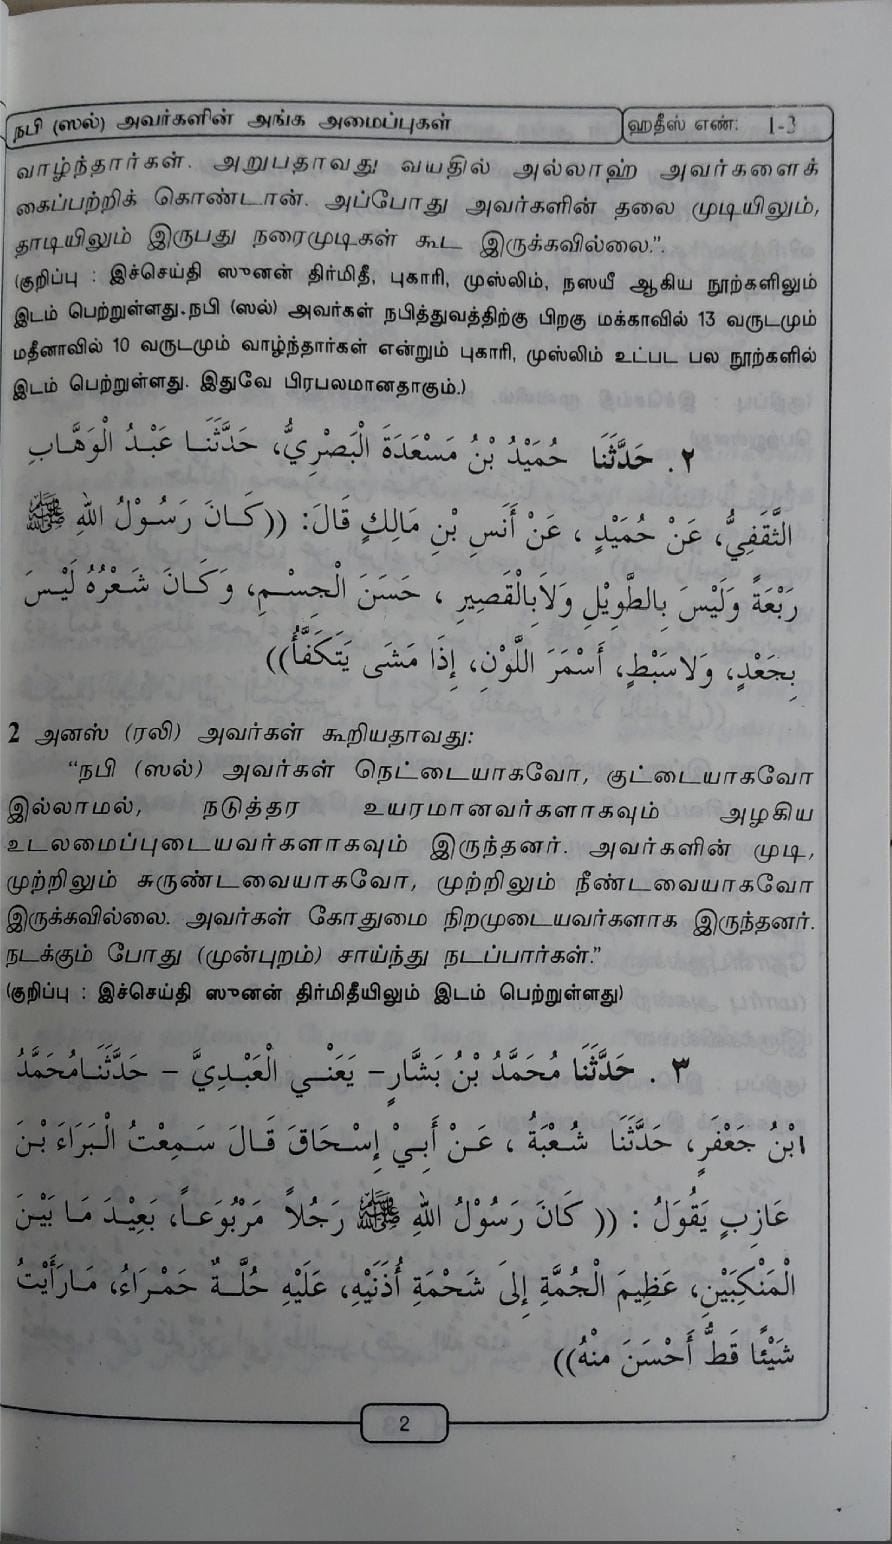 நபி (ஸல்) அவர்களின் அங்க அமைப்புகள்
ஹதீஸ் எண்: 1-3
வாழ்ந்தார்கள். அறுபதாவது வயதில் அல்லாஹ் அவர்களைக்
கைப்பற்றிக் கொண்டான். அப்போது அவர்களின் தலை முடியிலும்,
தாடியிலும் இருபது நரைமுடிகள் கூட இருக்கவில்லை.”.
(குறிப்பு : இச்செய்தி ஸுனன் திர்மிதீ, புகாரி, முஸ்லிம், நஸயீ ஆகிய நூற்களிலும்
இடம் பெற்றுள்ளது.நபி (ஸல்) அவர்கள் நபித்துவத்திற்கு பிறகு மக்காவில் 13 வருடமும்
மதீனாவில் 10 வருடமும் வாழ்ந்தார்கள் என்றும் புகாரி, முஸ்லிம் உட்பட பல நூற்களில்
இடம் பெற்றுள்ளது. இதுவே பிரபலமானதாகும்.)
٢. حَدَّثَنَا حُمَيْدُ بْنُ مَسْعَدَةَ الْبَصْرِيُّ، حَدَّثَنَا عَبْدُ الْوَهَّابِ
الثَّقَفِيُّ، عَنْ حُمَيْدٍ ، عَنْ أَنَسِ بْنِ مَالِكٍ قَالَ: ((كَانَ رَسُوْلُ اللهِ ﷺ
رَبْعَةً وَلَيْسَ بِالطَّوِيْلِ وَلاَبِالْقَصِيرِ ، حَسَنَ الْجِسْمِ، وَكَانَ شَعْرُهُ لَيْسَ
بِجَعْدٍ، وَلاسَبْطٍ، أَسْمَرَ اللَّوْنِ، إِذَا مَشَى يَتَكَفَّأُ))
2 அனஸ் (ரலி) அவர்கள் கூறியதாவது:
“நபி (ஸல்) அவர்கள் நெட்டையாகவோ, குட்டையாகவோ
இல்லாமல், நடுத்தர உயரமானவர்களாகவும் அழகிய
உடலமைப்புடையவர்களாகவும் இருந்தனர். அவர்களின் முடி,
முற்றிலும் சுருண்டவையாகவோ, முற்றிலும் நீண்டவையாகவோ
இருக்கவில்லை. அவர்கள் கோதுமை நிறமுடையவர்களாக இருந்தனர்.
நடக்கும் போது (முன்புறம்) சாய்ந்து நடப்பார்கள்.”
(குறிப்பு : இச்செய்தி ஸுனன் திர்மிதீயிலும் இடம் பெற்றுள்ளது)
٣. حَدَّثَنَا مُحَمَّدُ بْنُ بَشَّارٍ- يَعَنْي الْعَبْدِيَّ - حَدَّثَنَامُحَمَّدُ
ابْنُ جَعْفَرٍ، حَدَّثَنَا شُعْبَةُ ، عَنْ أَبِيْ إِسْحَاقَ قَالَ سَمِعْتُ الْبَرَاءَ بْنَ
عَازِبٍ يَقُوْلُ : (( كَانَ رَسُوْلُ اللهِ ﷺ رَجُلاً مَرْبُوْعَاً، بَعِيْدَ مَا بَيْنَ
الْمَنْكِبَيْنِ، عَظِيمَ الْجُمَّةِ إِلىَ شَحْمَةِ أُذُنَيْهِ، عَلَيْهِ حُلَّةٌ حَمْرَاءُ، مَارَأَيْتُ
شَيْئًا قَطُّ أَحْسَنَ مِنْهُ))
2